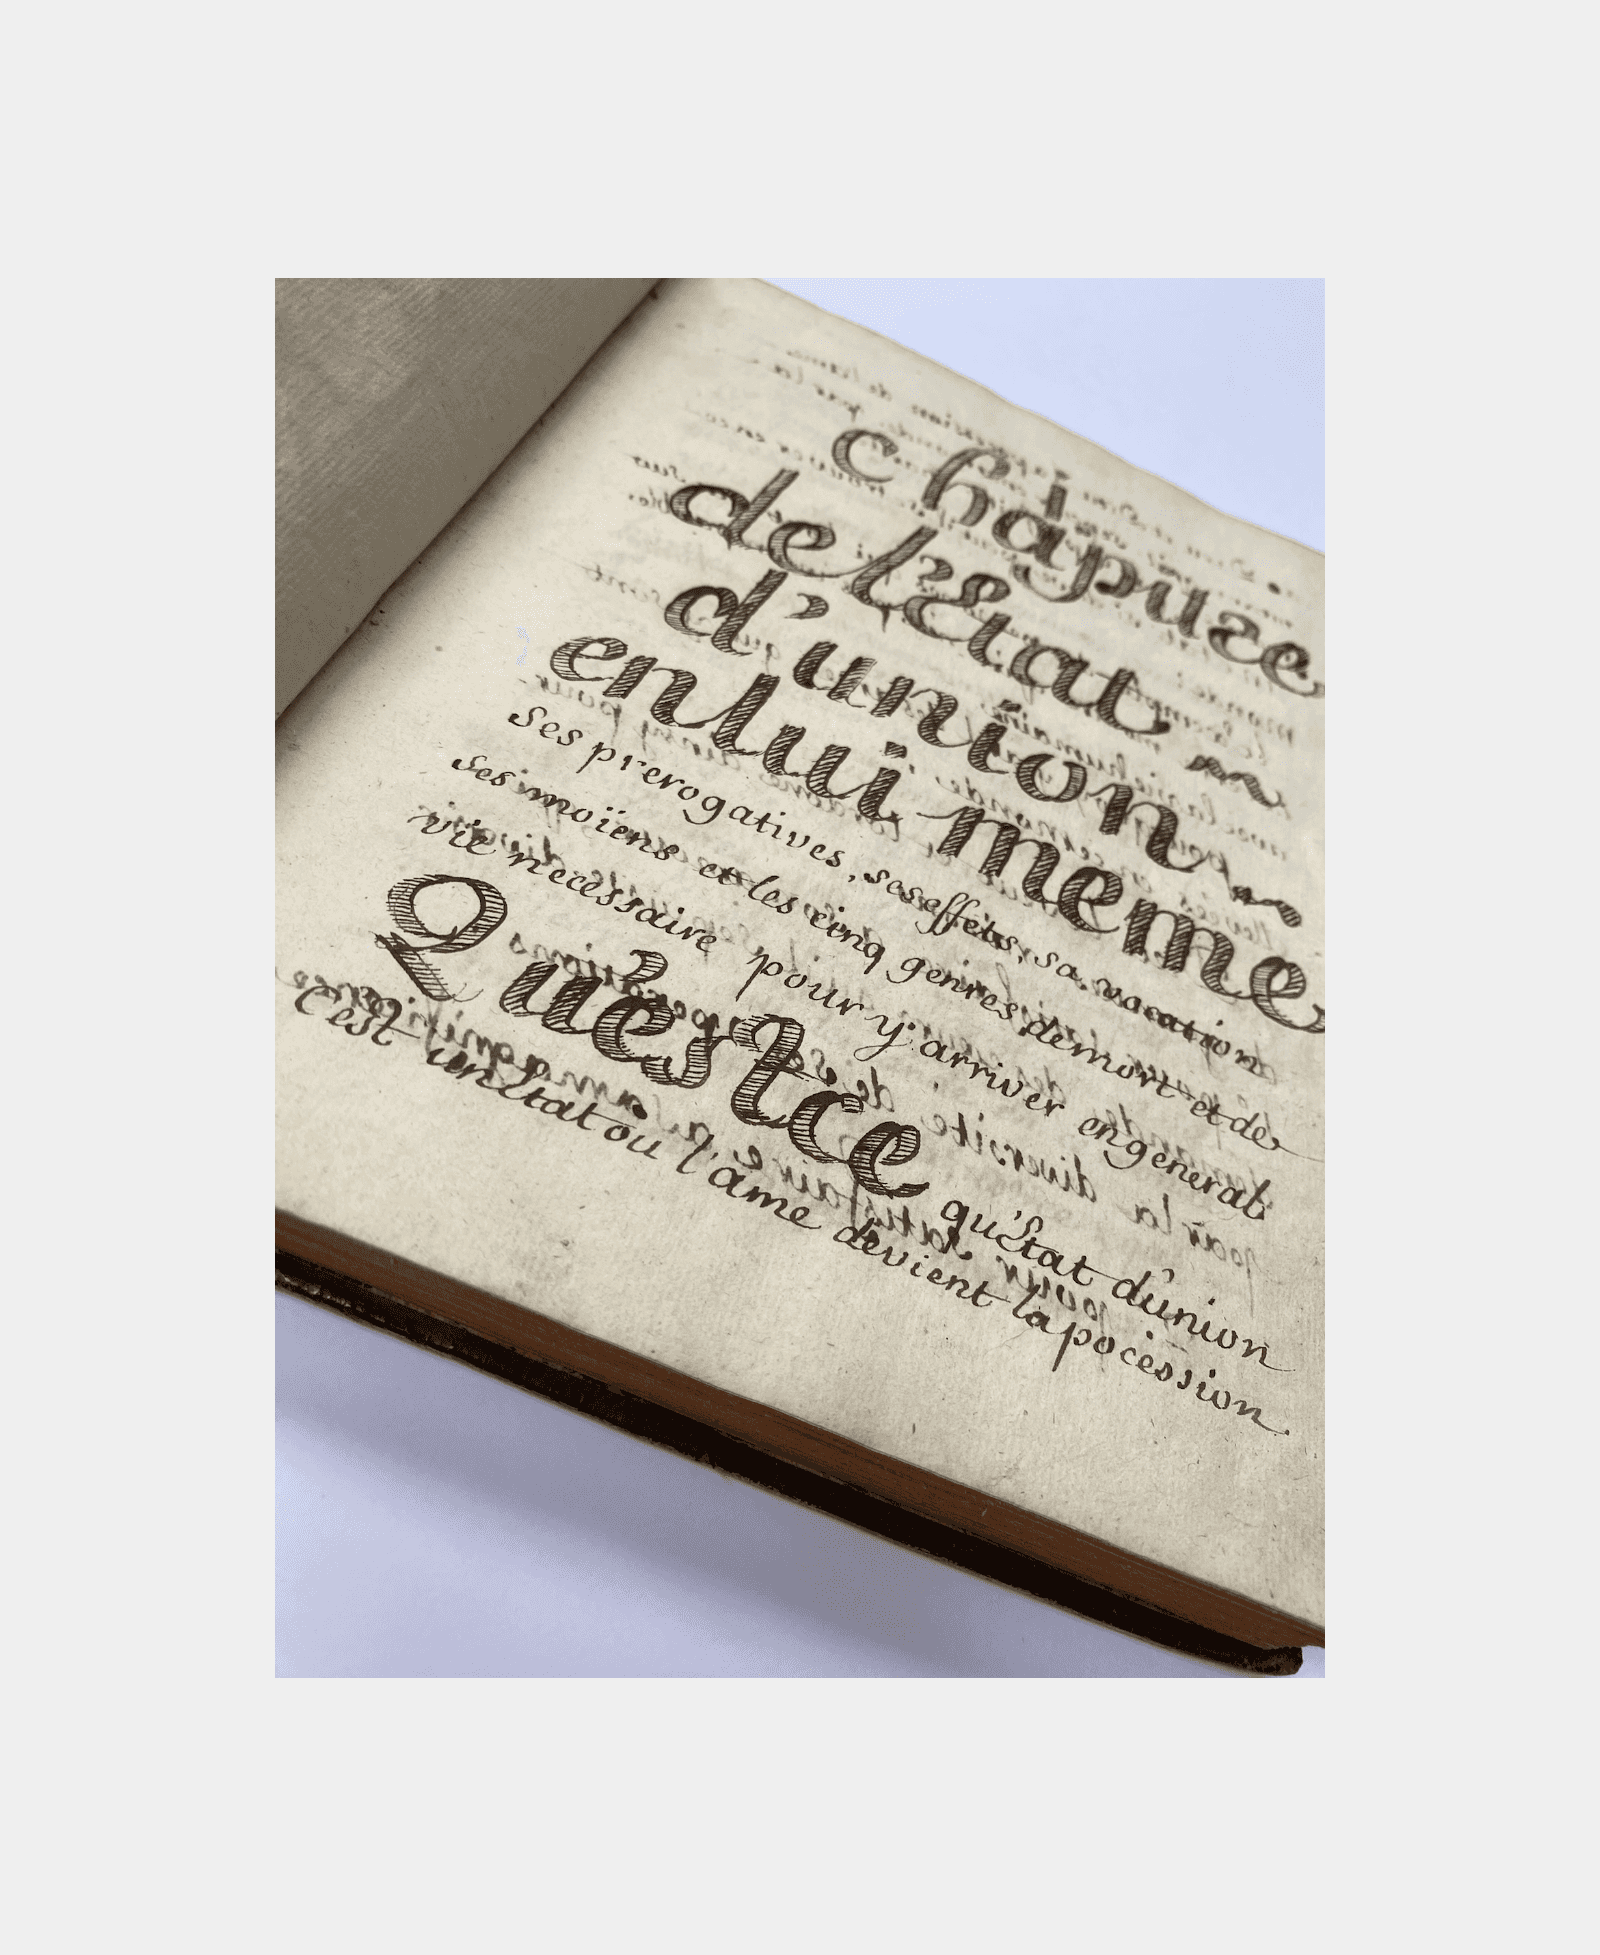 chapitre
de l'Etat
d'union
en lui memé
ses prerogatives, ses effets, sa vocation
ses moïens et les cinq genres demort et de
vie necessaire pour y arriver en general
Quést'ce qu'Etat d'union
C'est un Etat ou l'âme devient la pocéssion